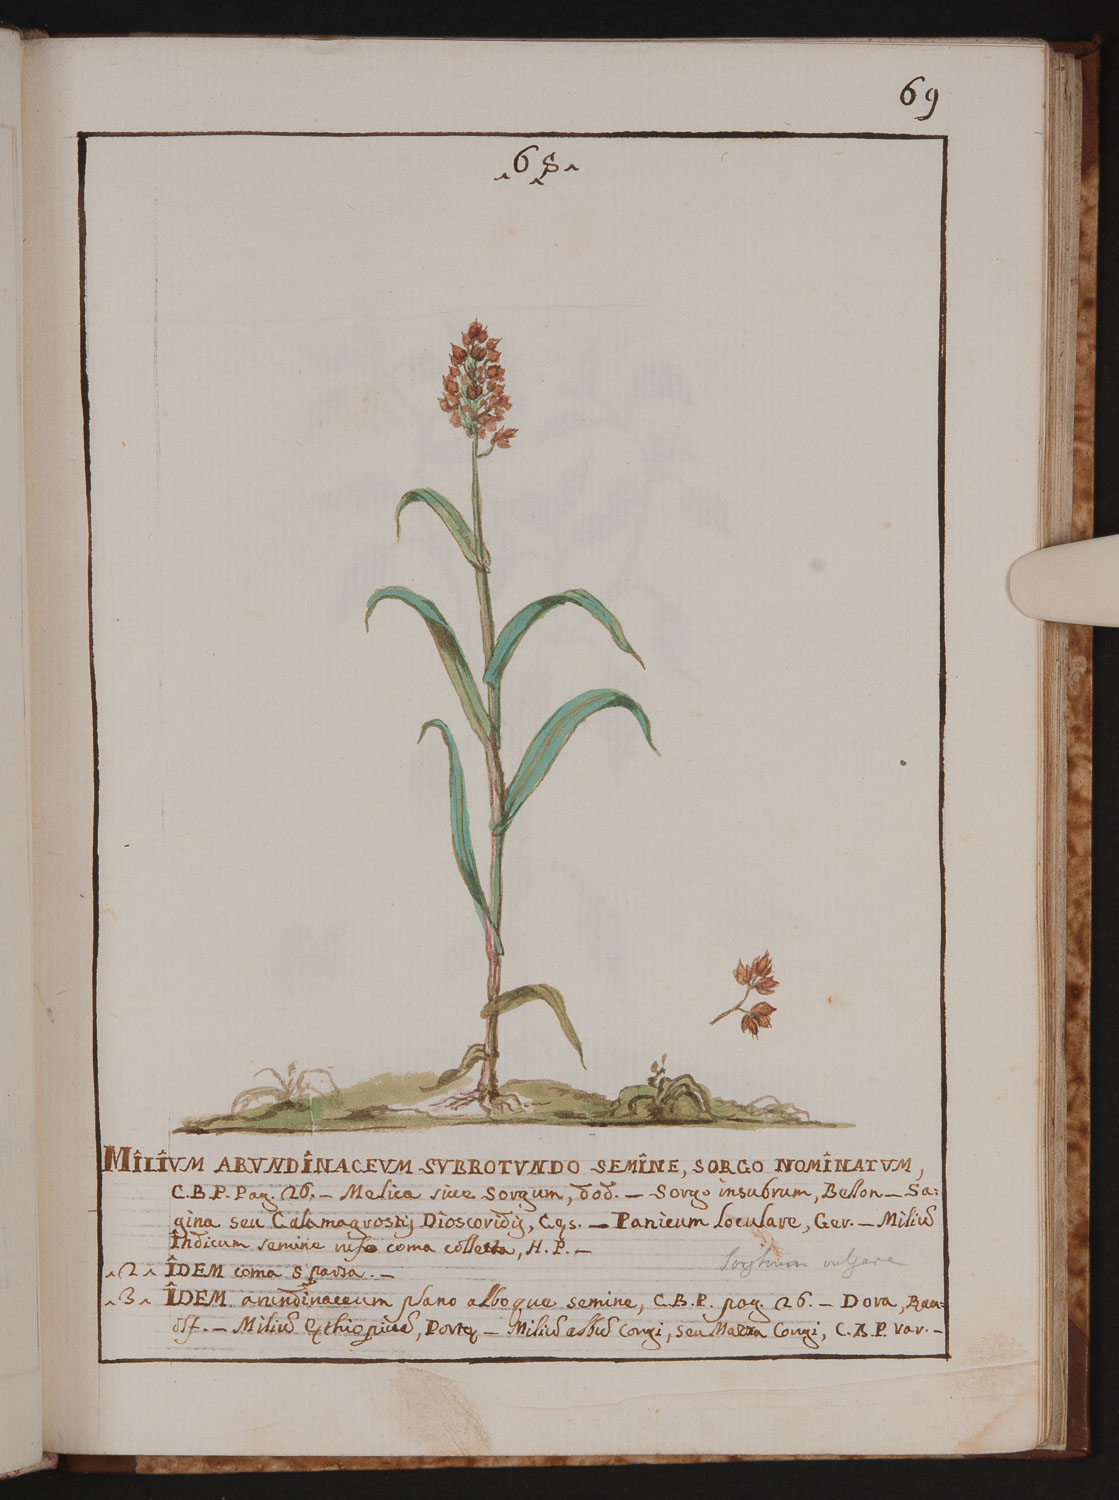 69
68
MÎLÎVM ARVNDÎNACEVM SVBROTVNDO SEMÎNE, SORGO NOMÎNATVM,
C.B.P. Pag. 26. – Melica siue Sorgum, dod. – Sorgo insubrum, Bellon – Sa:
gina seu Calamagrostis Dioscoridis, Cæs. – Panicum loculare, Ger. – Miliū
Îndicum semine rufo coma collecta, H. P. –
Sorghum vulgare
2 ÎDEM coma sparsa. –
3 ÎDEM arundinaceum plano alboque semine, C.B.P. pag. 26. – Dora, Rau:
olf. – Miliū Ethiopicū, Port. – Miliū albū Congi, seu Mazza Congi, C.A.P. var. –